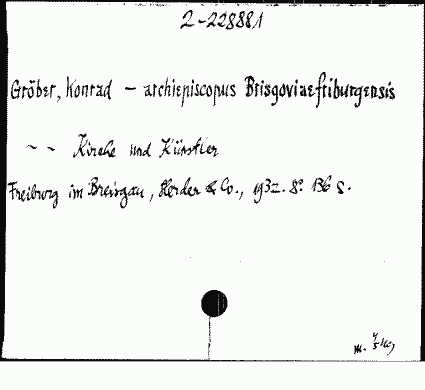 2-228881
Gröber, Konrad - archiepiscopus Brisgoviaefriburgensis
~ ~ Kirche und Künstler
Freiburg im Breisgau, Herder & Co., 1932. 8° 136 S.